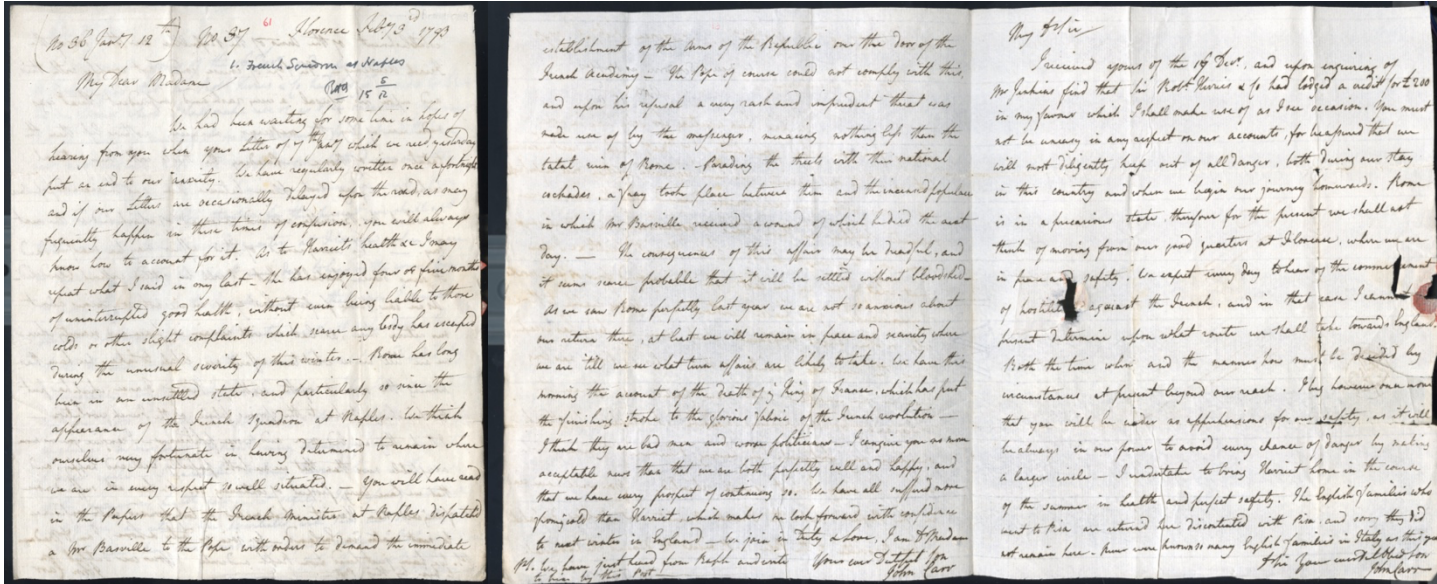 (No 36 Jany 12th) No. 37 Florence Feby 3d 1793
61
1. French Squadron at Naples
My Dear Madam
15 5/12
We had been waiting for some time in hopes of
hearing from you when your Letter of ye which we recd yesterday
put an end to our anxiety. We have regularly written once a fortnight
and if our Letters are occasionally delayed upon the road, as may
frequently happen in these times of confusion, you will always
know how to account for it. As to Harriets health &c I may
repeat what I said in my last - She has enjoyed four or five months
of uninterrupted good health, without even being liable to those
colds or other slight complaints which scarce any body has escaped
during the unusual severity of this winter. - Rome has long
been in an unsettled state, and particularly so since the
appearance of the French squadron at Naples. We think
ourselves very fortunate in having determined to remain where
we are in every respect so well situated. - You will have read
in the Papers that the French Minister at Naples dispatched
a Mr Basville to the Pope, with orders to demand the immediate
establishment of the Arms of the Republic over the door of the
French Academy - The Pope of course could not comply with this,
and upon his refusal a very rash and imprudent threat was
made use of by the messenger, menacing nothing less than the
total ruin of Rome. - Parading the streets with their national
cockades, a fray took place between them and the incensed populace
in which Mr Basville received a wound of which he died the next
day. - The consequences of this affair may be dreadful, and
it seems scarce probable that it will be settled without bloodshed -
As we saw Rome perfectly last year, we are not so anxious about
our return there, at least we will remain in peace and security where
we are till we see what turn affairs are likely to take. We have this
morning the account of the death of ye King of France, which has put
the finishing stroke to the glorious fabric of the French revolution -
I think they are bad men and worse politicians - I can give you no more
acceptable news than that we are both perfectly well and happy, and
that we have every prospect of continuing so. We have all suffered more
from cold than Harriet, which makes me look forward with confidence
to next winter in England - We join in Duty & Love, I am Dr Madam
Your ever Dutiful Son
John Carr
PS. We have just heard from Ralph and write
to him by this Post -
My Dr Sir
I received yours of the 19 Decr. and upon enquiring of
Mr Jenkins find that Sir Robt. Herries & Co had lodged a credit for £200
in my favour which I shall make use of as I see occasion. You must
not be uneasy in any respect on our accounts, for be assured that we
will most diligently keep out of all danger, both during our stay
in this country and when we begin our journey homewards. Rome
is in a precarious state, therefore for the present we shall not
think of moving from our good quarters at Florence, where we are
in peace and safety. We expect every day to hear of the commencement
of hostilities against the French, and in that case I cannot at
present determine upon what route we shall take towards England.
Both the time when and the manner how must be decided by
circumstances at present beyond our reach. I beg however once more
that you will be under no apprehensions for our safety, as it will
be always in our power to avoid every chance of danger by making
a larger circle - I undertake to bring Harriet home in the course
of the summer in health and perfect safety. The English families who
went to Pisa are returned here discontented with Pisa, and sorry they did
not remain here. Never were known so many English families in Italy as this year
Dr Sir Your ever Dutiful Son
John Carr